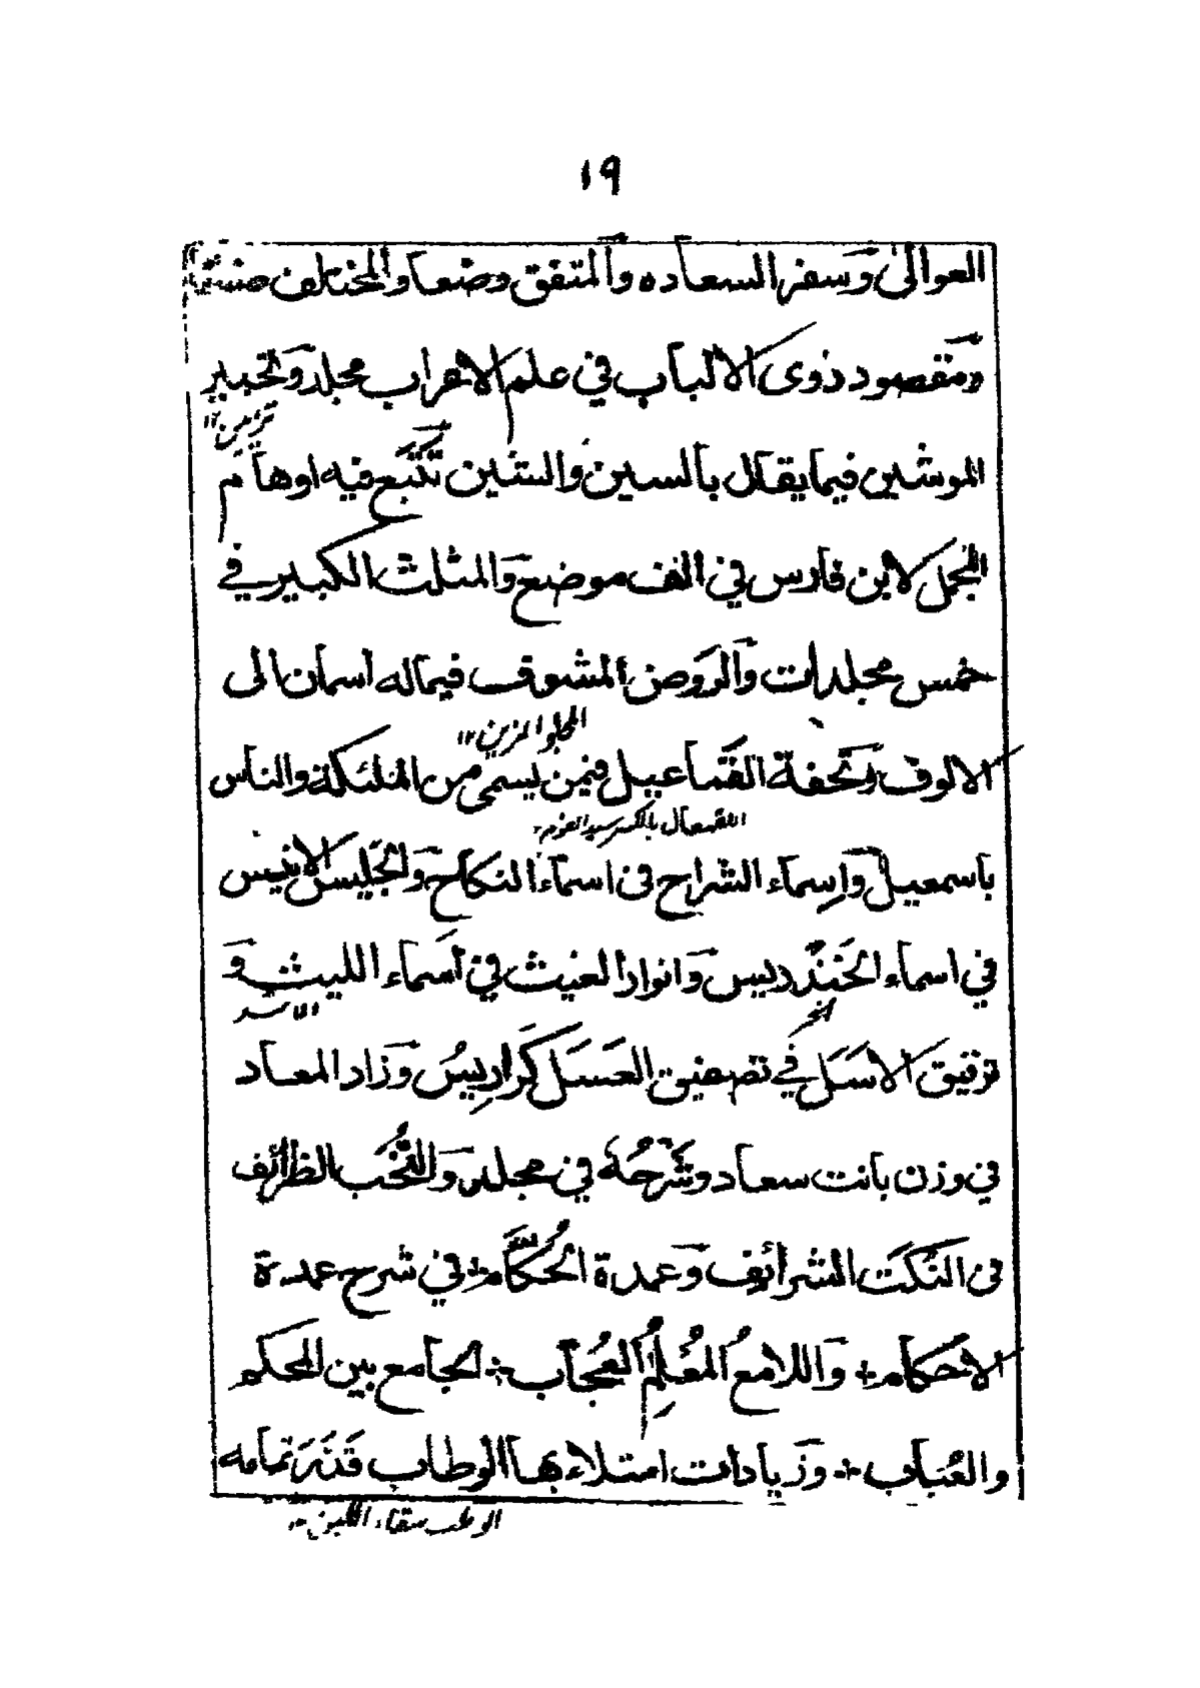 ١٩
العوالى وسفر السعاده والمتفق وضعا والمختلف
ومقصود ذوى الالباب في علم الاعراب مجلد وتحبير
تزيين ١٢
الموشين فيما يقال بالسين والشين تتبع فيه اوهام
المجمل لابن فارس في الف موضع والمثلث الكبير في
خمس مجلدات والروض المشوف فيماله اسمان الى
المجلو المزين ١٢
الالوف وتحفة القماعيل فيمن يسمى من الملئكة والناس
القمعال بالكسر سيد القوم
باسمعيل واسماء السراح فى اسماء النكاح والجليس الانيس
في اسماء الخندريس وانوار الغيث في اسماء الليث و
الخمر
الاسد
ترقيق الاسل في تصفيق العسل كراريس وزاد المعاد
في وزن بانت سعاد وشرحه في مجلد والنخب الظرائف
فى النكت الشرائف وعمدة الحكام في شرح عمدة
الاحكام واللامع المعلم العجاب الجامع بين المحكم
والعباب وزيادات امتلاء بها الوطاب قدر تمامه
الوطب سقاء اللبن